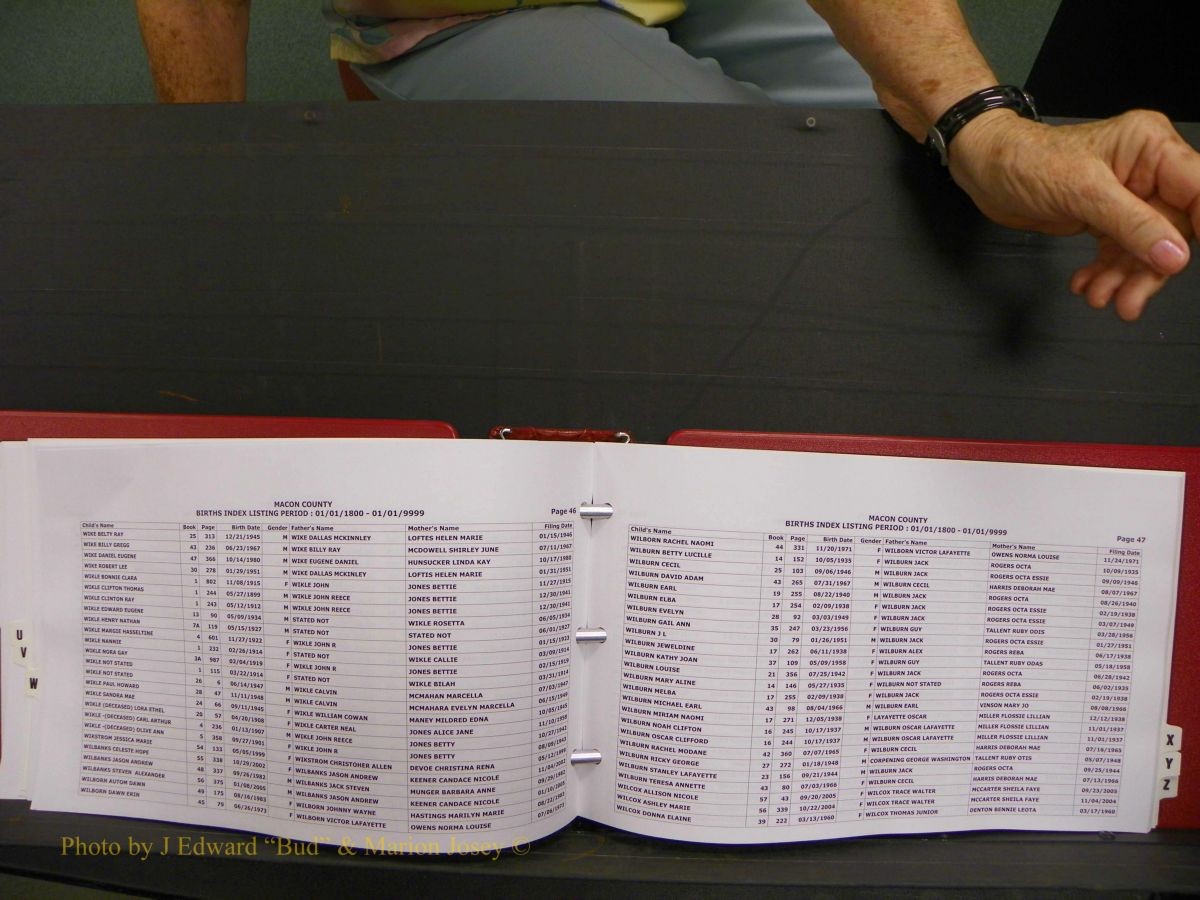 MACON COUNTY
BIRTHS INDEX LISTING PERIOD : 01/01/1800 - 01/01/9999 Page 46
Child's Name Book Page Birth Date Gender Father's Name Mother's Name Filing Date
WIKE BELTY RAY 25 313 12/21/1945 M WIKE DALLAS MCKINNLEY LOFTES HELEN MARIE 01/15/1946
WIKE BILLY GREGG 43 236 06/23/1967 M WIKE BILLY RAY MCDOWELL SHIRLEY JUNE 07/11/1967
WIKE DANIEL EUGENE 47 366 10/14/1980 M WIKE EUGENE DANIEL HUNSUCKER LINDA KAY 10/17/1980
WIKE ROBERT LEE 30 278 01/29/1951 M WIKE DALLAS MCKINLEY LOFTIS HELEN MARIE 01/31/1951
WIKLE BONNIE CLARA 1 802 11/08/1915 F WIKLE JOHN JONES BETTIE 11/27/1915
WIKLE CLIFTON THOMAS 1 244 05/27/1899 M WIKLE JOHN REECE JONES BETTIE 12/30/1941
WIKLE CLINTON RAY 1 243 05/12/1912 M WIKLE JOHN REECE JONES BETTIE 12/30/1941
WIKLE EDWARD EUGENE 13 90 05/09/1934 M STATED NOT WIKLE ROSETTA 06/05/1934
WIKLE HENRY NATHAN 7A 119 05/15/1927 M STATED NOT STATED NOT 06/01/1927
WIKLE MARGIE HASSELTINE 4 601 11/27/1922 F WIKLE JOHN R JONES BETTIE 01/15/1923
WIKLE NANNIE 1 232 02/26/1914 F STATED NOT WIKLE CALLIE 03/09/1914
WIKLE NORA GAY 3A 987 02/04/1919 F WIKLE JOHN R JONES BETTIE 02/15/1919
WIKLE NOT STATED 1 115 03/23/1914 F STATED NOT WIKLE BILAH 03/31/1914
WIKLE NOT STATED 26 6 06/14/1947 M WIKLE CALVIN MCMAHAN MARCELLA 07/03/1947
WIKLE PAUL HOWARD 28 47 11/11/1948 M WIKLE CALVIN MCMAHARA EVELYN MARCELLA 06/15/1949
WIKLE SANDRA MAE 24 66 09/11/1945 F WIKLE WILLIAM COWAN MANEY MILDRED EDNA 10/05/1945
WIKLE (DECEASED) LORA ETHEL 20 57 04/20/1908 F WIKLE CARTER NEAL JONES ALICE JANE 11/10/1958
WIKLE -(DECEASED) CARL ARTHUR 4 236 01/13/1907 M WIKLE JOHN REECE JONES BETTY 10/27/1942
WIKLE -(DECEASED) OLIVE ANN 5 358 09/27/1901 F WIKLE JOHN R JONES BETTY 08/09/1943
WIKSTROM JESSICA MARIE 54 133 05/05/1999 F WIKSTROM CHRISTOHER ALLEN DEVOE CHRISTINA RENA 05/12/1999
WILBANKS CELESTE HOPE 55 338 10/29/2002 F WILBANKS JASON ANDREW KEENER CANDACE NICOLE 11/04/2002
WILBANKS JASON ANDREW 48 337 09/26/1982 M WILBANKS JACK STEVEN MUNGER BARBARA ANNE 09/29/1982
WILBANKS STEVEN ALEXANDER 56 375 01/08/2005 M WILBANKS JASON ANDREW KEENER CANDACE NICOLE 01/10/2005
WILBORN AUTOM DAWN 49 175 08/16/1983 F WILBORN JOHNNY WAYNE HASTINGS MARILYN MARIE 08/22/1983
WILBORN DAWN ERIN 45 79 06/26/1973 F WILBORN VICTOR LAFAYETTE OWENS NORMA LOUISE 07/06/1973
U
V
W
MACON COUNTY
BIRTHS INDEX LISTING PERIOD : 01/01/1800 - 01/01/9999 Page 47
Child's Name Book Page Birth Date Gender Father's Name Mother's Name Filing Date
WILBORN RACHEL NAOMI 44 331 11/20/1971 F WILBORN VICTOR LAFAYETTE OWENS NORMA LOUISE 11/24/1971
WILBURN BETTY LUCILLE 14 152 10/05/1935 F WILBURN JACK ROGERS OCTA 10/09/1935
WILBURN CECIL 25 103 09/06/1946 M WILBURN JACK ROGERS OCTA ESSIE 09/09/1946
WILBURN DAVID ADAM 43 265 07/31/1967 M WILBURN CECIL HARRIS DEBORAH MAE 08/07/1967
WILBURN EARL 19 255 08/22/1940 M WILBURN JACK ROGERS OCTA 08/26/1940
WILBURN ELBA 17 254 02/09/1938 F WILBURN JACK ROGERS OCTA ESSIE 02/19/1938
WILBURN EVELYN 28 92 03/03/1949 F WILBURN JACK ROGERS OCTA ESSIE 03/07/1949
WILBURN GAIL ANN 35 247 03/23/1956 F WILBURN GUY TALLENT RUBY ODIS 03/28/1956
WILBURN J L 30 79 01/26/1951 M WILBURN JACK ROGERS OCTA ESSIE 01/27/1951
WILBURN JEWELDINE 17 262 06/11/1938 F WILBURN ALEX ROGERS REBA 06/17/1938
WILBURN KATHY JOAN 37 109 05/09/1958 F WILBURN GUY TALLENT RUBY ODAS 05/18/1958
WILBURN LOUISE 21 356 07/25/1942 F WILBURN JACK ROGERS OCTA 08/28/1942
WILBURN MARY ALINE 14 146 05/27/1935 F WILBURN NOT STATED ROGERS REBA 06/02/1935
WILBURN MELBA 17 255 02/09/1938 F WILBURN JACK ROGERS OCTA ESSIE 02/19/1938
WILBURN MICHAEL EARL 43 98 08/04/1966 M WILBURN EARL VINSON MARY JO 08/08/1966
WILBURN MIRIAM NAOMI 17 271 12/05/1938 F LAYAYETTE OSCAR MILLER FLOSSIE LILLIAN 12/12/1938
WILBURN NOAH CLIFTON 16 245 10/17/1937 M WILBURN OSCAR LAFAYETTE MILLER FLOSSIE LILLIAN 11/01/1937
WILBURN OSCAR CLIFFORD 16 244 10/17/1937 M WILBURN OSCAR LAFAYETTE MILLER FLOSSIE LILLIAN 11/01/1937
WILBURN RACHEL MODANE 42 360 07/07/1965 F WILBURN CECIL HARRIS DEBORAH MAE 07/16/1965
WILBURN RICKY GEORGE 27 272 01/18/1948 M CORPENING GEORGE WASHINGTON TALLENT RUBY OTIS 05/07/1948
WILBURN STANLEY LAFAYETTE 23 156 09/21/1944 M WILBURN JACK ROGERS OCTA 09/25/1944
WILBURN TERESA ANNETTE 43 80 07/03/1966 F WILBURN CECIL HARRIS DEBORAH MAE 07/13/1966
WILCOX ALLISON NICOLE 57 43 09/20/2005 F WILCOX TRACE WALTER MCCARTER SHEILA FAYE 09/23/2005
WILCOX ASHLEY MARIE 56 339 10/22/2004 F WILCOX TRACE WALTER MCCARTER SHEILA FAYE 11/04/2004
WILCOX DONNA ELAINE 39 222 03/13/1960 F WILCOX THOMAS JUNIOR DENTON BENNIE LEOTA 03/17/1960
X
Y
Z
Photo by J Edward “Bud” & Marion Josey ©